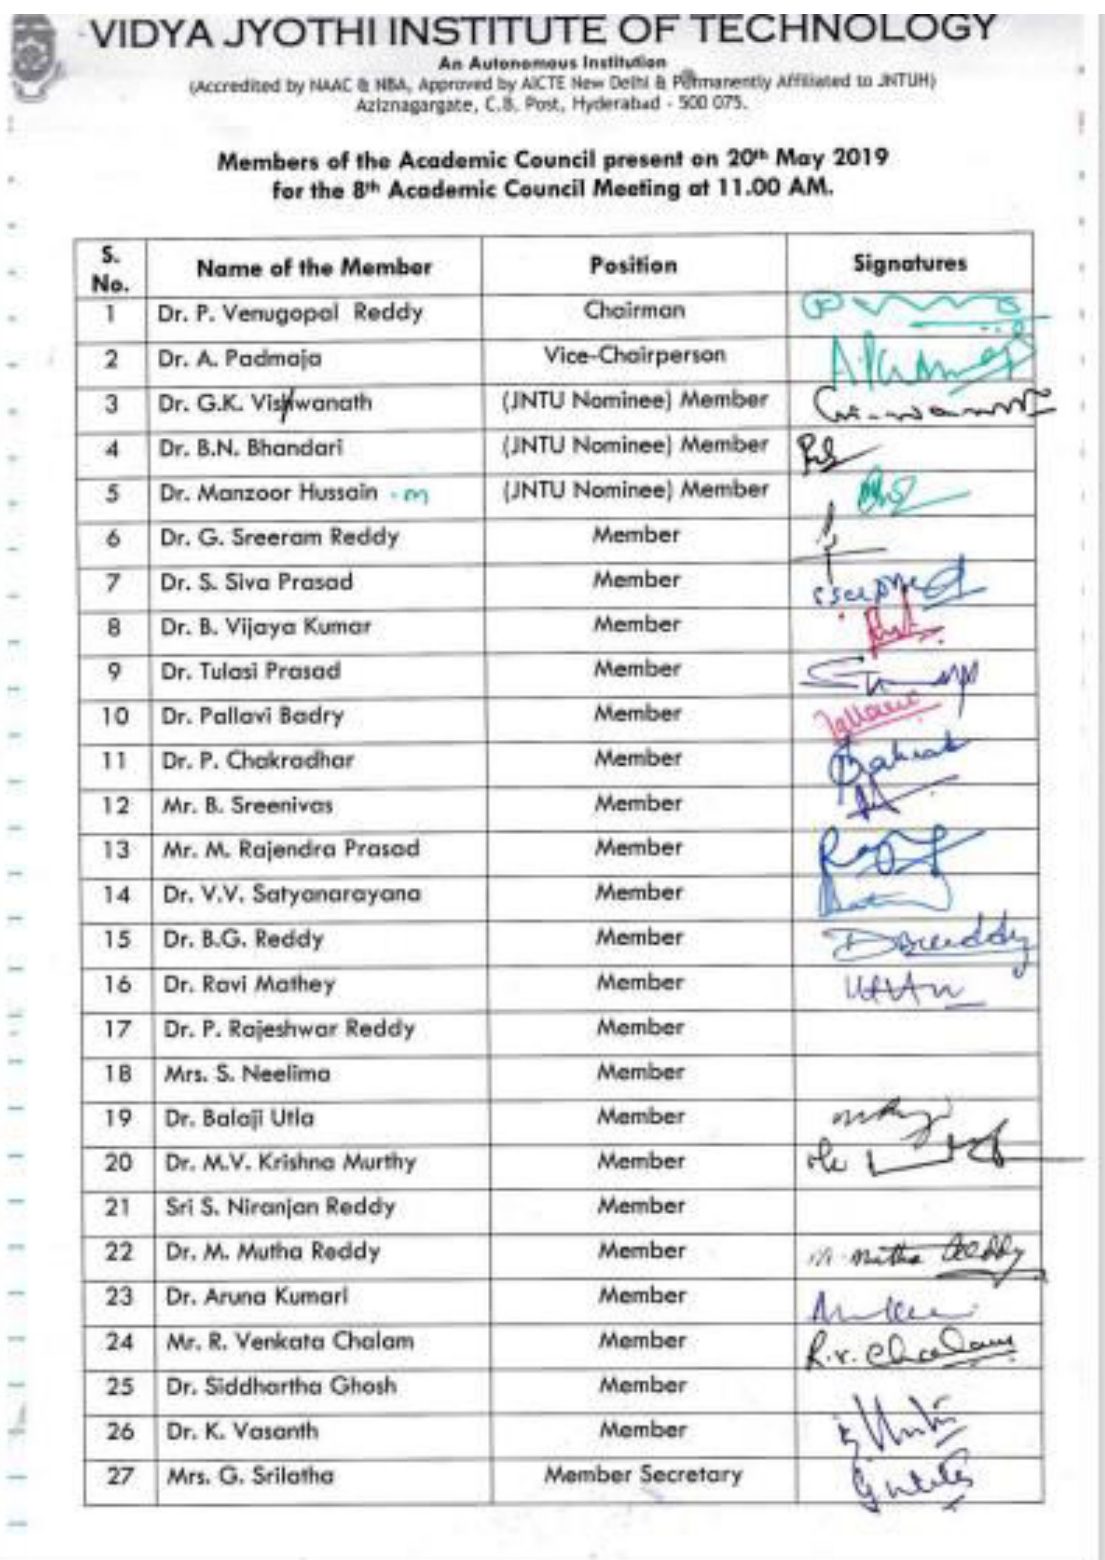 VIDYA JYOTHI INSTITUTE OF TECHNOLOGY
An Autonomous Institution
(Accredited by NAAC & NBA, Approved by AICTE New Delhi & Permanently Affiliated to JNTUH)
Aziznagargate, C.B. Post, Hyderabad - 500 075.
Members of the Academic Council present on 20th May 2019
for the 8th Academic Council Meeting at 11.00 AM.
S. No. Name of the Member Position Signatures
1 Dr. P. Venugopal Reddy Chairman
2 Dr. A. Padmaja Vice-Chairperson
3 Dr. G.K. Vishwanath (JNTU Nominee) Member
4 Dr. B.N. Bhandari (JNTU Nominee) Member
5 Dr. Manzoor Hussain . m (JNTU Nominee) Member
6 Dr. G. Sreeram Reddy Member
7 Dr. S. Siva Prasad Member
8 Dr. B. Vijaya Kumar Member
9 Dr. Tulasi Prasad Member
10 Dr. Pallavi Badry Member
11 Dr. P. Chakradhar Member
12 Mr. B. Sreenivas Member
13 Mr. M. Rajendra Prasad Member
14 Dr. V.V. Satyanarayana Member
15 Dr. B.G. Reddy Member
16 Dr. Ravi Mathey Member
17 Dr. P. Rajeshwar Reddy Member
18 Mrs. S. Neelima Member
19 Dr. Balaji Utla Member
20 Dr. M.V. Krishna Murthy Member
21 Sri S. Niranjan Reddy Member
22 Dr. M. Mutha Reddy Member M. Mutha Reddy
23 Dr. Aruna Kumari Member
24 Mr. R. Venkata Chalam Member R.V. Chalam
25 Dr. Siddhartha Ghosh Member
26 Dr. K. Vasanth Member
27 Mrs. G. Srilatha Member Secretary